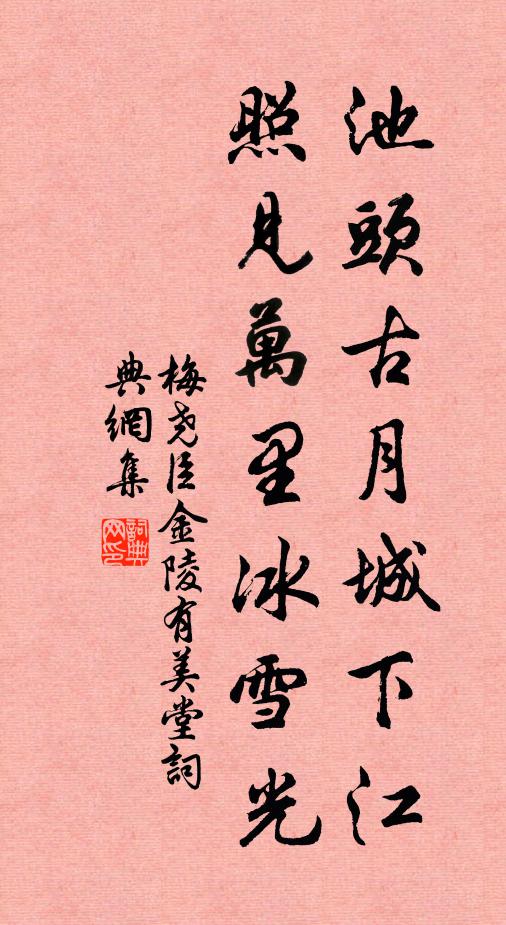 池頭古月城下江
照見萬里冰雪光
梅尧臣金陵有美堂詞
典網集
詞典
网印